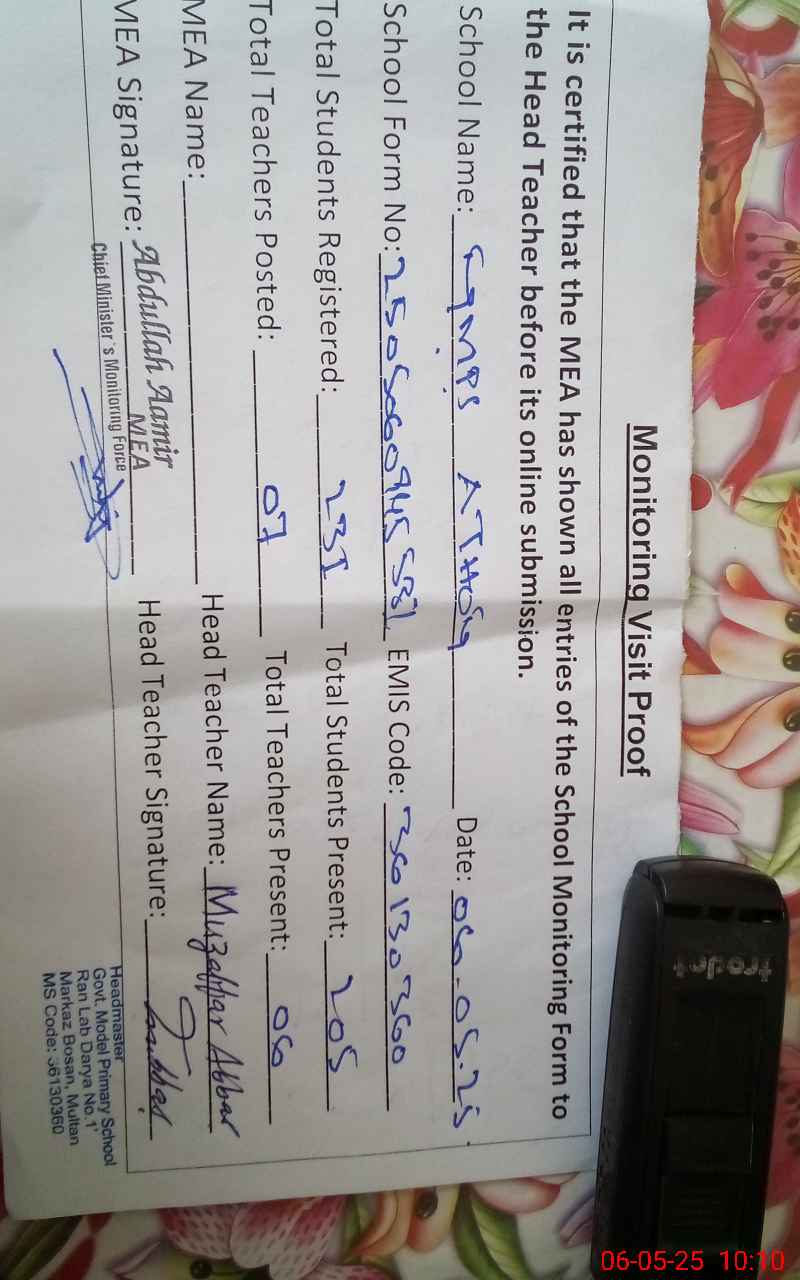 Monitoring Visit Proof
It is certified that the MEA has shown all entries of the School Monitoring Form to
the Head Teacher before its online submission.
School Name: GMPS Date: 06-05-25
School Form No: EMIS Code: 36130360
Total Students Registered: 231 Total Students Present: 205
Total Teachers Posted: 07 Total Teachers Present: 06
MEA Name: Head Teacher Name: Muzaffar Abbas
MEA Signature: Abdullah Aamir Head Teacher Signature:
MEA
Chief Minister's Monitoring Force
Headmaster
Govt. Model Primary School
Ran Lab Darya No.1'
Markaz Bosan, Multan
MS Code: 36130360
06-05-25 10:10